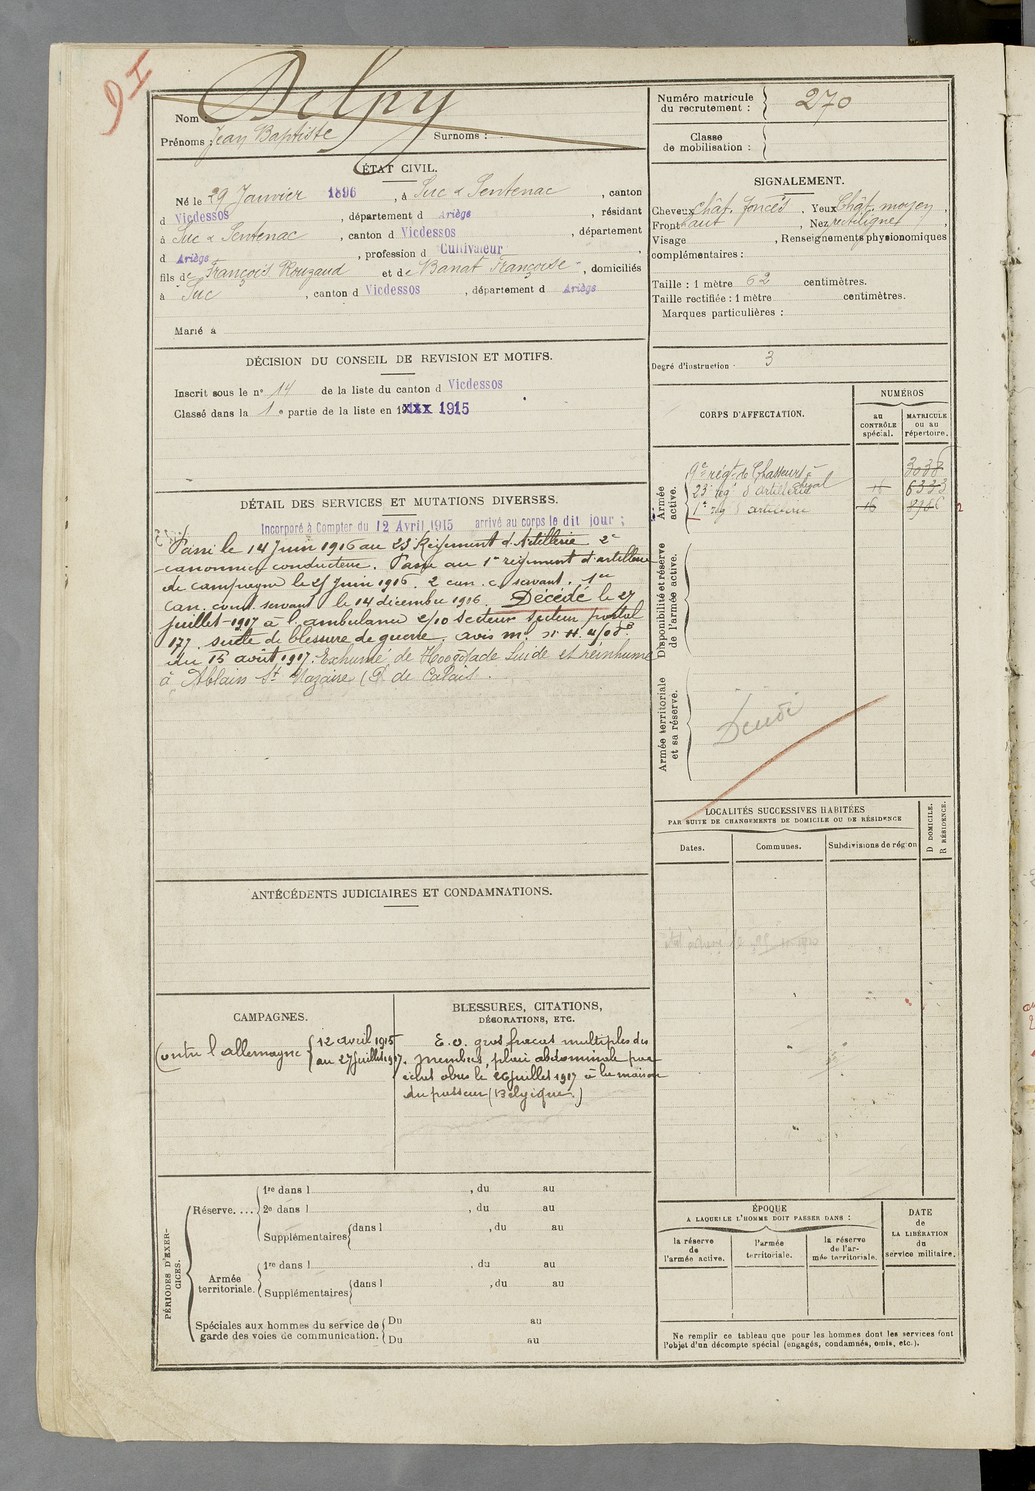 9I
Nom : Delpy
Prénoms : Jean Baptiste Surnoms :
ÉTAT CIVIL.
Né le 29 Janvier 1896, à Suc & Sentenac, canton
d Vicdessos, département d Ariège, résidant
à Suc & Sentenac, canton d Vicdessos, département
d Ariège, profession d Cultivateur,
fils de François Rouzaud et de Banat Françoise, domiciliés
à Suc, canton d Vicdessos, département d Ariège
Marié à
DÉCISION DU CONSEIL DE REVISION ET MOTIFS.
Inscrit sous le n° 14 de la liste du canton d Vicdessos
Classé dans la 1e partie de la liste en 1915
DÉTAIL DES SERVICES ET MUTATIONS DIVERSES.
Incorporé à Compter du 12 Avril 1915 arrivé au corps le dit jour ;
Passé le 14 Juin 1916 au 23 Régiment d'Artillerie 2e
canonnier conducteur. Passé au 1er régiment d'artillerie
de campagne le 21 Juin 1916. 2 can. c. servant. 1er
can. cond. servant le 14 décembre 1916. Décédé le 27
juillet 1917 à l'ambulance 2/10 secteur postal
177. suite de blessure de guerre. avis m.
du 15 août 1917. Exhumé de Hoogstade Linde et réinhumé
à Ablain St Nazaire (P. de Calais.
ANTÉCÉDENTS JUDICIAIRES ET CONDAMNATIONS.
CAMPAGNES.
Contre l'allemagne { 12 avril 1915
au 27 juillet 1917.
BLESSURES, CITATIONS,
DÉCORATIONS, ETC.
E.O. gros fracas multiples des
membres, plaie abdominale par
éclat obus le 26 juillet 1917 à la maison
du passeur (Belgique.)
PÉRIODES D'EXERCICES.
Réserve.... 1re dans l , du au
2e dans l , du au
Supplémentaires dans l , du au
Armée territoriale. 1re dans l , du au
Supplémentaires dans l , du au
Spéciales aux hommes du service de garde des voies de communication. Du au
Du au
Numéro matricule du recrutement : 270
Classe de mobilisation :
SIGNALEMENT.
Cheveux chât. foncés, Yeux Chât. moyen,
Front haut, Nez rectiligne,
Visage , Renseignements physionomiques
complémentaires :
Taille : 1 mètre 62 centimètres.
Taille rectifiée : 1 mètre centimètres.
Marques particulières :
Degré d'instruction 3
CORPS D'AFFECTATION.
NUMÉROS
au CONTRÔLE spécial.
MATRICULE ou au répertoire.
Armée active.
9e régt de Chasseurs à cheval 3038
23e rég. d'artillerie 16 6333
1er rég d'artillerie 16
Disponibilité et réserve de l'armée active.
Armée territoriale et sa réserve.
LOCALITÉS SUCCESSIVES HABITÉES
PAR SUITE DE CHANGEMENTS DE DOMICILE OU DE RÉSIDENCE
D DOMICILE. R RÉSIDENCE.
Dates. Communes. Subdivisions de région
ÉPOQUE
A LAQUELLE L'HOMME DOIT PASSER DANS :
la réserve de l'armée active.
l'armée territoriale.
la réserve de l'armée territoriale.
DATE de LA LIBÉRATION du service militaire.
Ne remplir ce tableau que pour les hommes dont les services font
l'objet d'un décompte spécial (engagés, condamnés, omis, etc.).